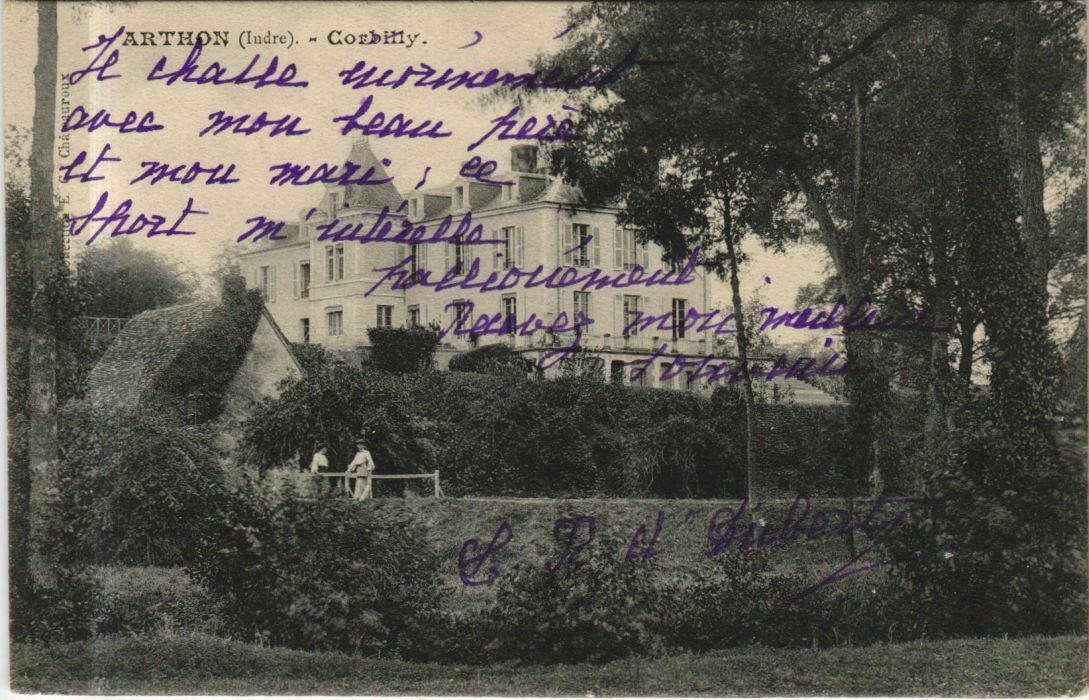 ARTHON (Indre). - Corbilly.
Je chasse énormément
avec mon beau père
et mon mari, ce
sport m'intéresse
passionément
Recevez mon meilleur
souvenir
Châteauroux